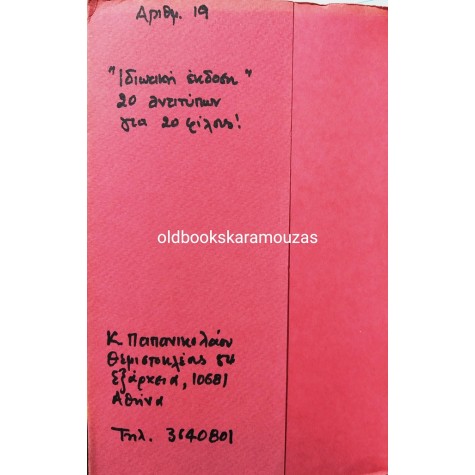 Αριθμ. 19
"Ιδιωτική έκδοση"
20 αντιτύπων
για 20 φίλους!
oldbookskaramouzas
Κ. Παπανικολάου
Θεμιστοκλέους 54
Εξάρχεια, 10681
Αθήνα
Τηλ. 3640801